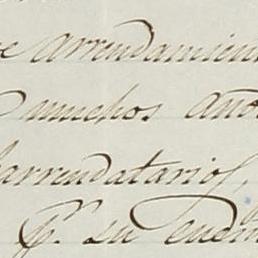 e arrendamien
muchos año
arrendatarios,
p. su endm